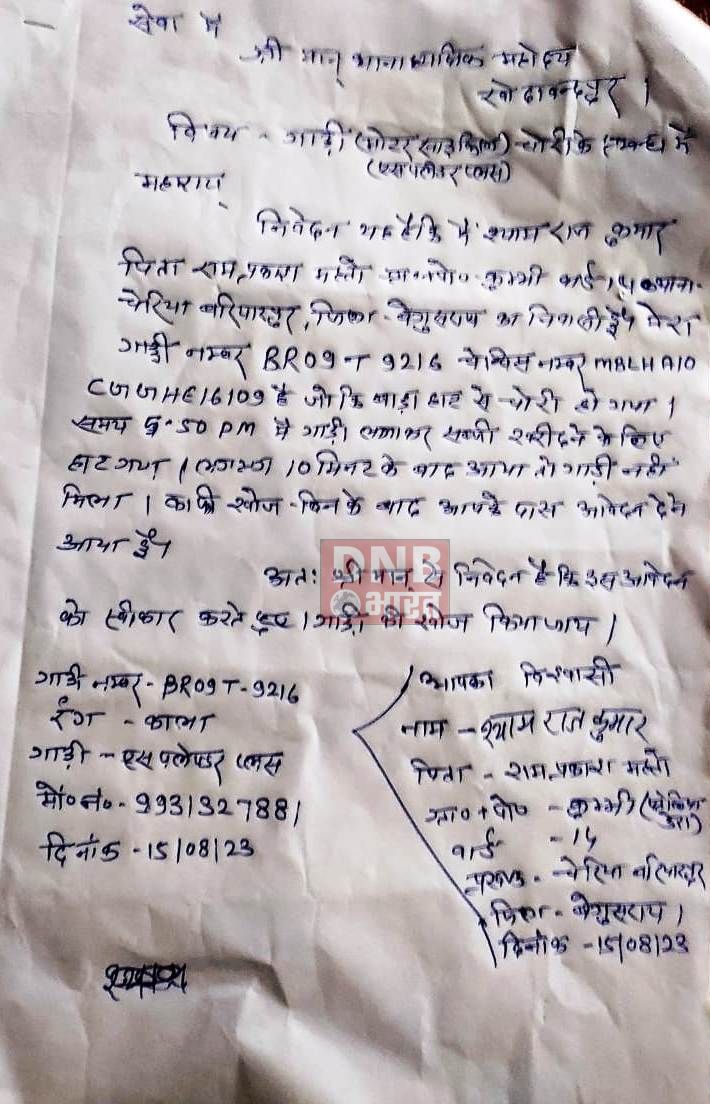 सेवा में
श्री मान् थानाध्यक्षिक महोदय
खोदावन्दपुर ।
विषय - गाड़ी (मोटर साइकिल) चोरी के सम्बन्ध में
(एसपलेंडर प्लस)
महाशय,
निवेदन यह है कि मैं श्याम राज कुमार
पिता राम प्रकाश महतो सा०पो० कुम्भी वार्ड 14 थाना-
चेरिया बरियारपुर, जिला - बेगुसराय का निवासी हूँ। मेरा
गाड़ी नम्बर BR09T 9216 चेचिस नम्बर MBLHA10
CGJHE16109 है जो कि बाड़ा हाट से चोरी हो गया ।
समय 5:50 PM में गाड़ी लगाकर सब्जी खरीदने के लिए
हाट गया । लगभग 10 मिनट के बाद आया तो गाड़ी नहीं
मिला । काफी खोज-बिन के बाद आपके पास आवेदन देने
आया हूँ।
अतः श्री मान् से निवेदन है कि इस आवेदन
को स्वीकार करते हुए । गाड़ी की खोज किया जाय ।
DNB
भारत
गाड़ी नम्बर - BR09T-9216
रंग - काला
गाड़ी - एसपलेण्डर प्लस
मो० न० - 9931327881
दिनाँक - 15/08/23
आपका विश्वासी
नाम - श्याम राज कुमार
पिता - राम प्रकाश महतो
ग्रा० + पो० - कुम्भी
वार्ड - 14
प्रखण्ड - चेरिया बरियारपुर
जिला - बेगुसराय ।
दिनाँक - 15/08/23